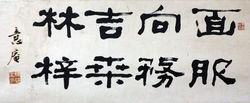 面服
向務
吉栄
林梓
意庵